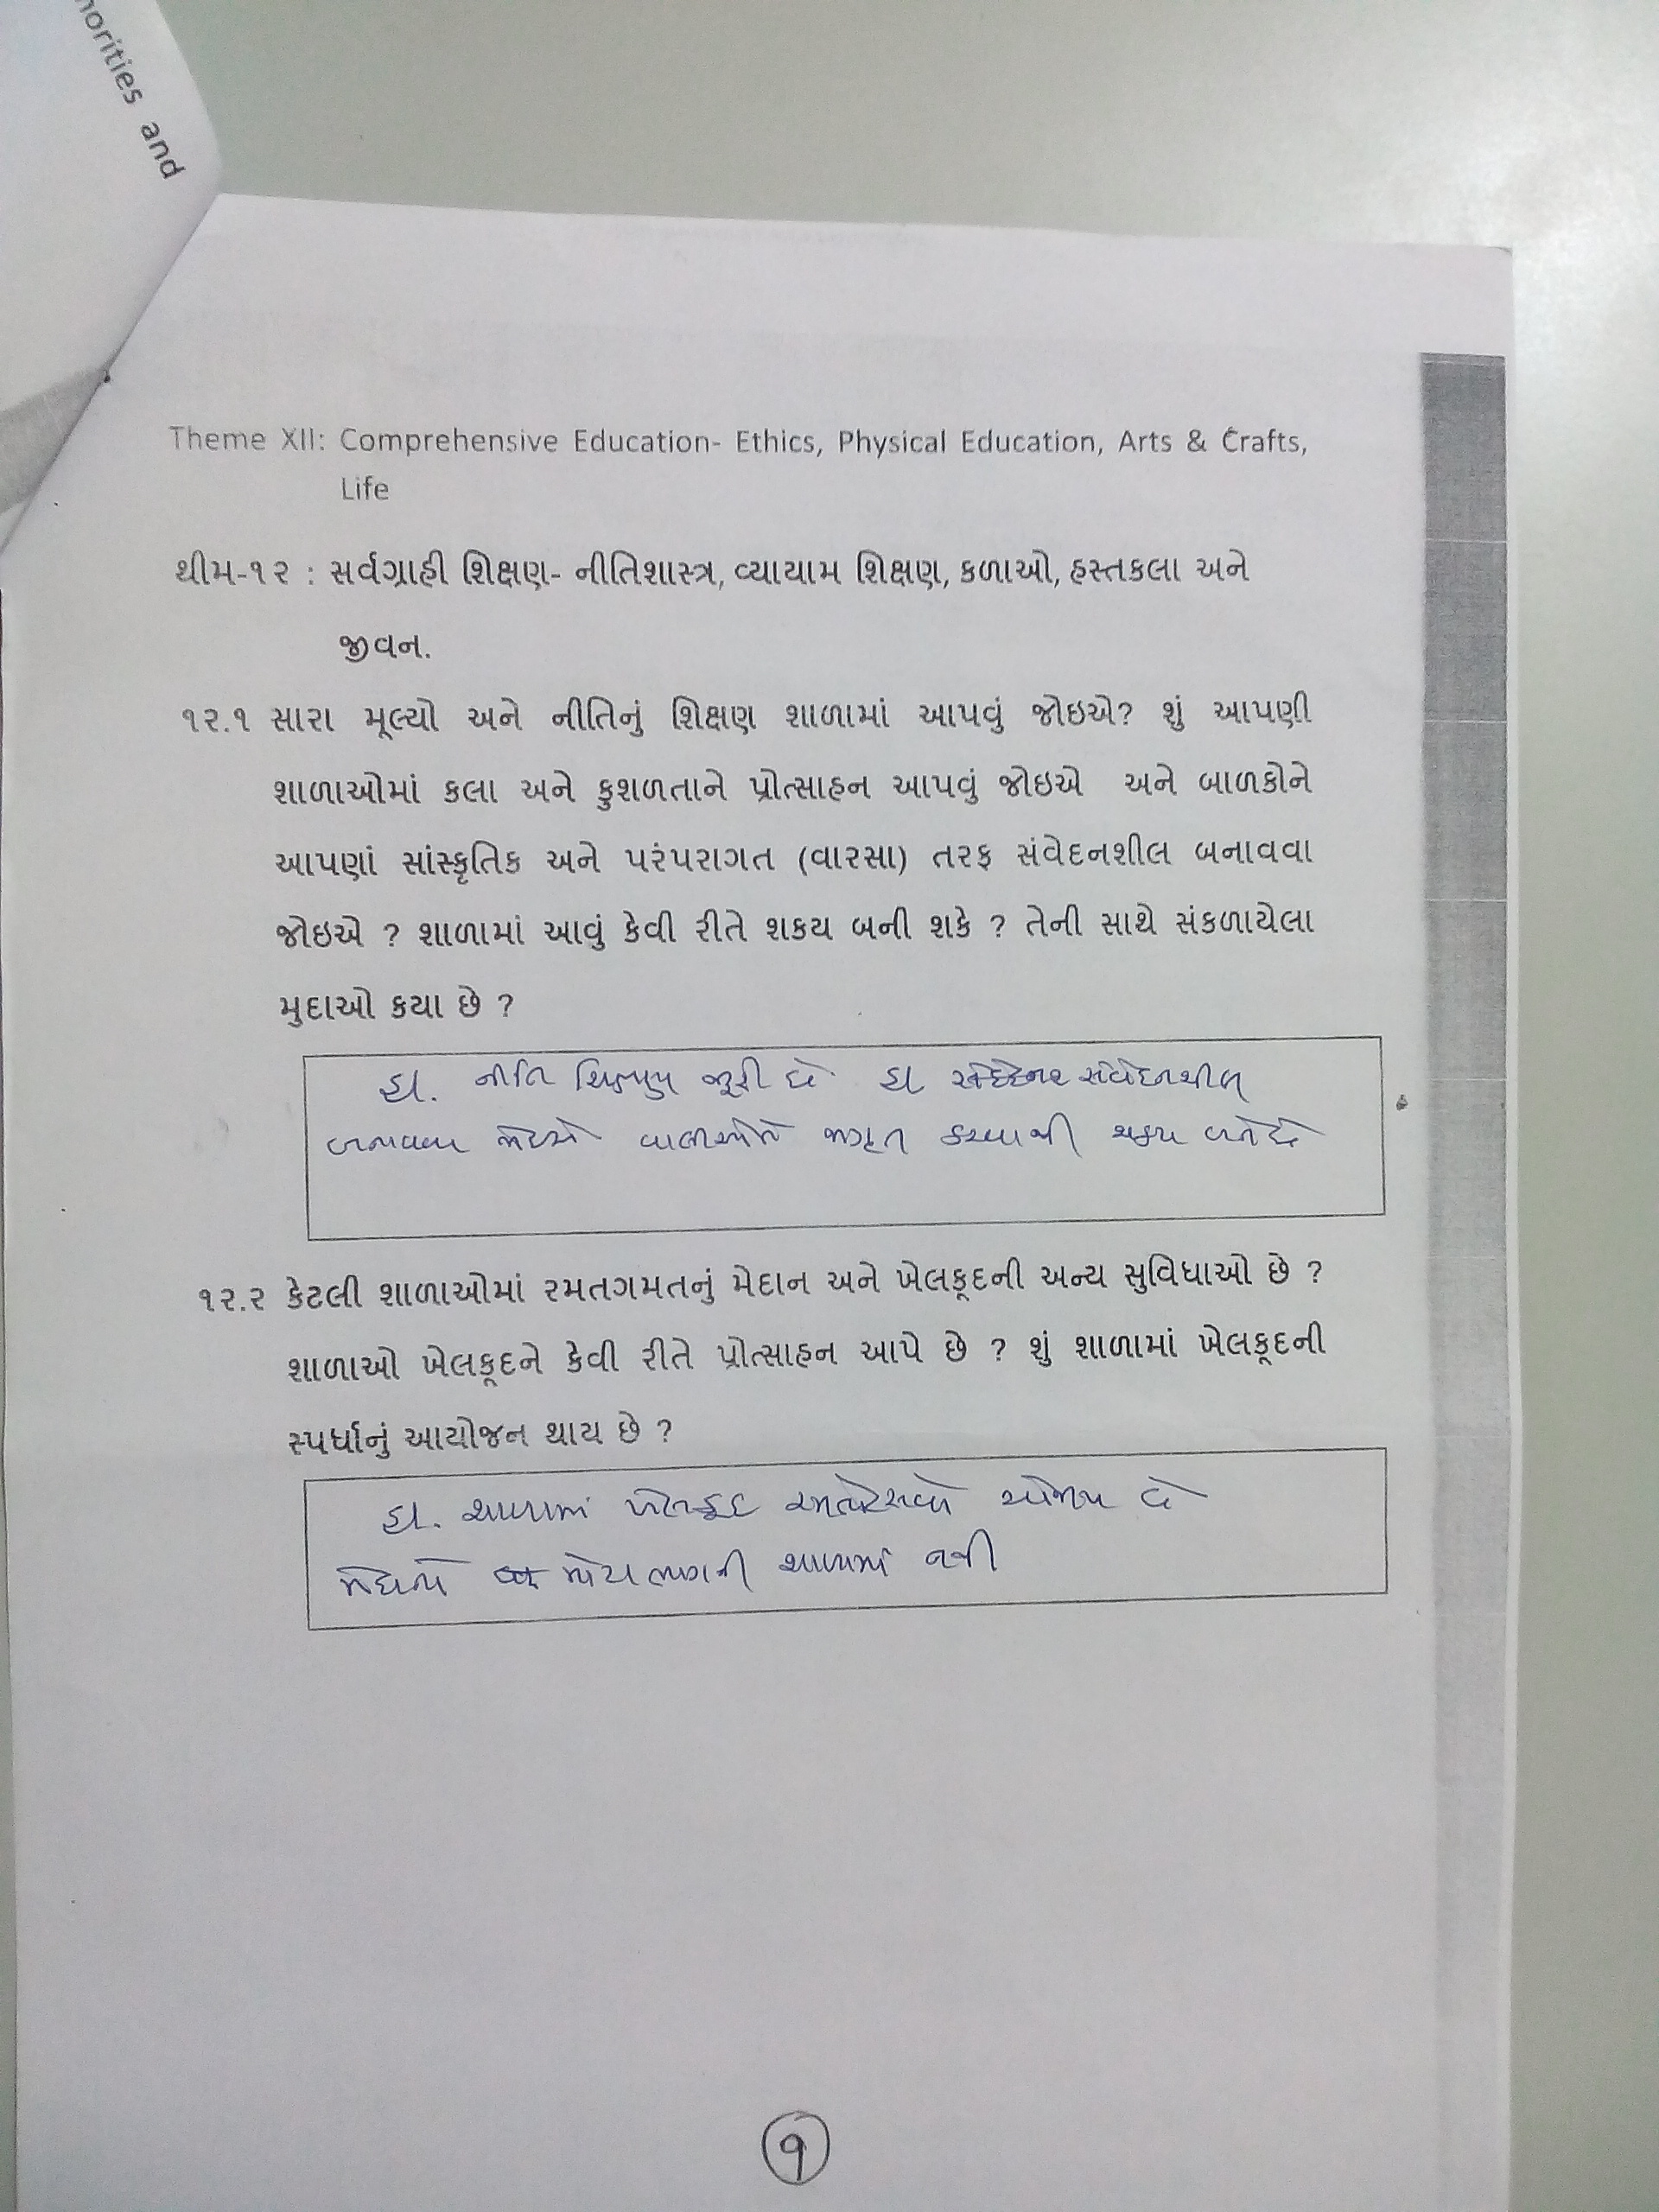 norities and
Theme XII: Comprehensive Education- Ethics, Physical Education, Arts & Crafts,
Life
થીમ-૧૨ : સર્વગ્રાહી શિક્ષણ- નીતિશાસ્ત્ર, વ્યાયામ શિક્ષણ, કળાઓ, હસ્તકલા અને
જીવન.
૧૨.૧ સારા મૂલ્યો અને નીતિનું શિક્ષણ શાળામાં આપવું જોઇએ? શું આપણી
શાળાઓમાં કલા અને કુશળતાને પ્રોત્સાહન આપવું જોઇએ અને બાળકોને
આપણાં સાંસ્કૃતિક અને પરંપરાગત (વારસા) તરફ સંવેદનશીલ બનાવવા
જોઇએ ? શાળામાં આવું કેવી રીતે શકય બની શકે ? તેની સાથે સંકળાયેલા
મુદાઓ કયા છે ?
હા. નીતિ શિક્ષણ જરૂરી છે હા સંવેદનશીલ
બનાવવા જોઇએ વાલીઓને જાગૃત કરવાથી શક્ય બને છે
૧૨.૨ કેટલી શાળાઓમાં રમતગમતનું મેદાન અને ખેલકૂદની અન્ય સુવિધાઓ છે ?
શાળાઓ ખેલકૂદને કેવી રીતે પ્રોત્સાહન આપે છે ? શું શાળામાં ખેલકૂદની
સ્પર્ધાનું આયોજન થાય છે ?
હા. શાળામાં ખેલકૂદ યોજાય છે
મેદાનો મોટા ભાગની શાળામાં નથી
૧